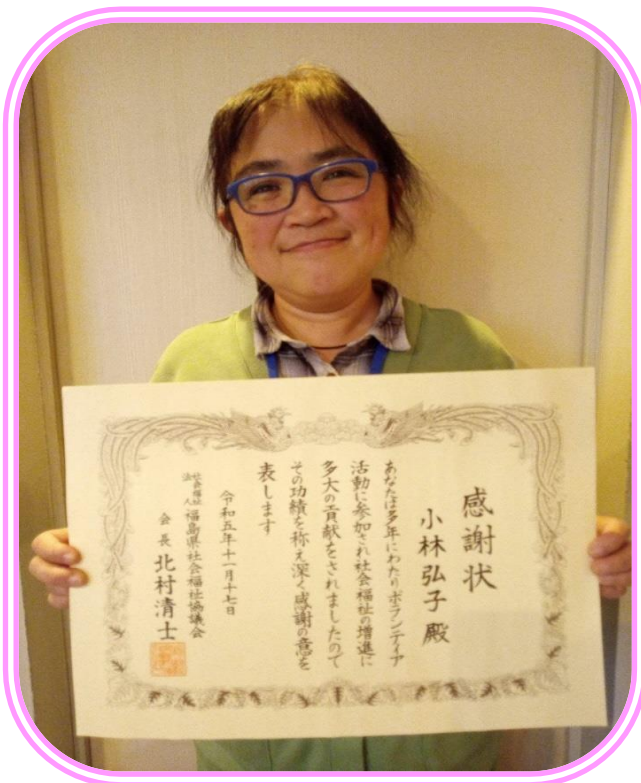 感謝状
小林弘子 殿
あなたは多年にわたりボランティア
活動に参加され社会福祉の増進に
多大の貢献をされましたので
その功績を称え深く感謝の意を
表します
令和五年十一月十七日
社会福祉法人 福島県社会福祉協議会
会長 北村清士